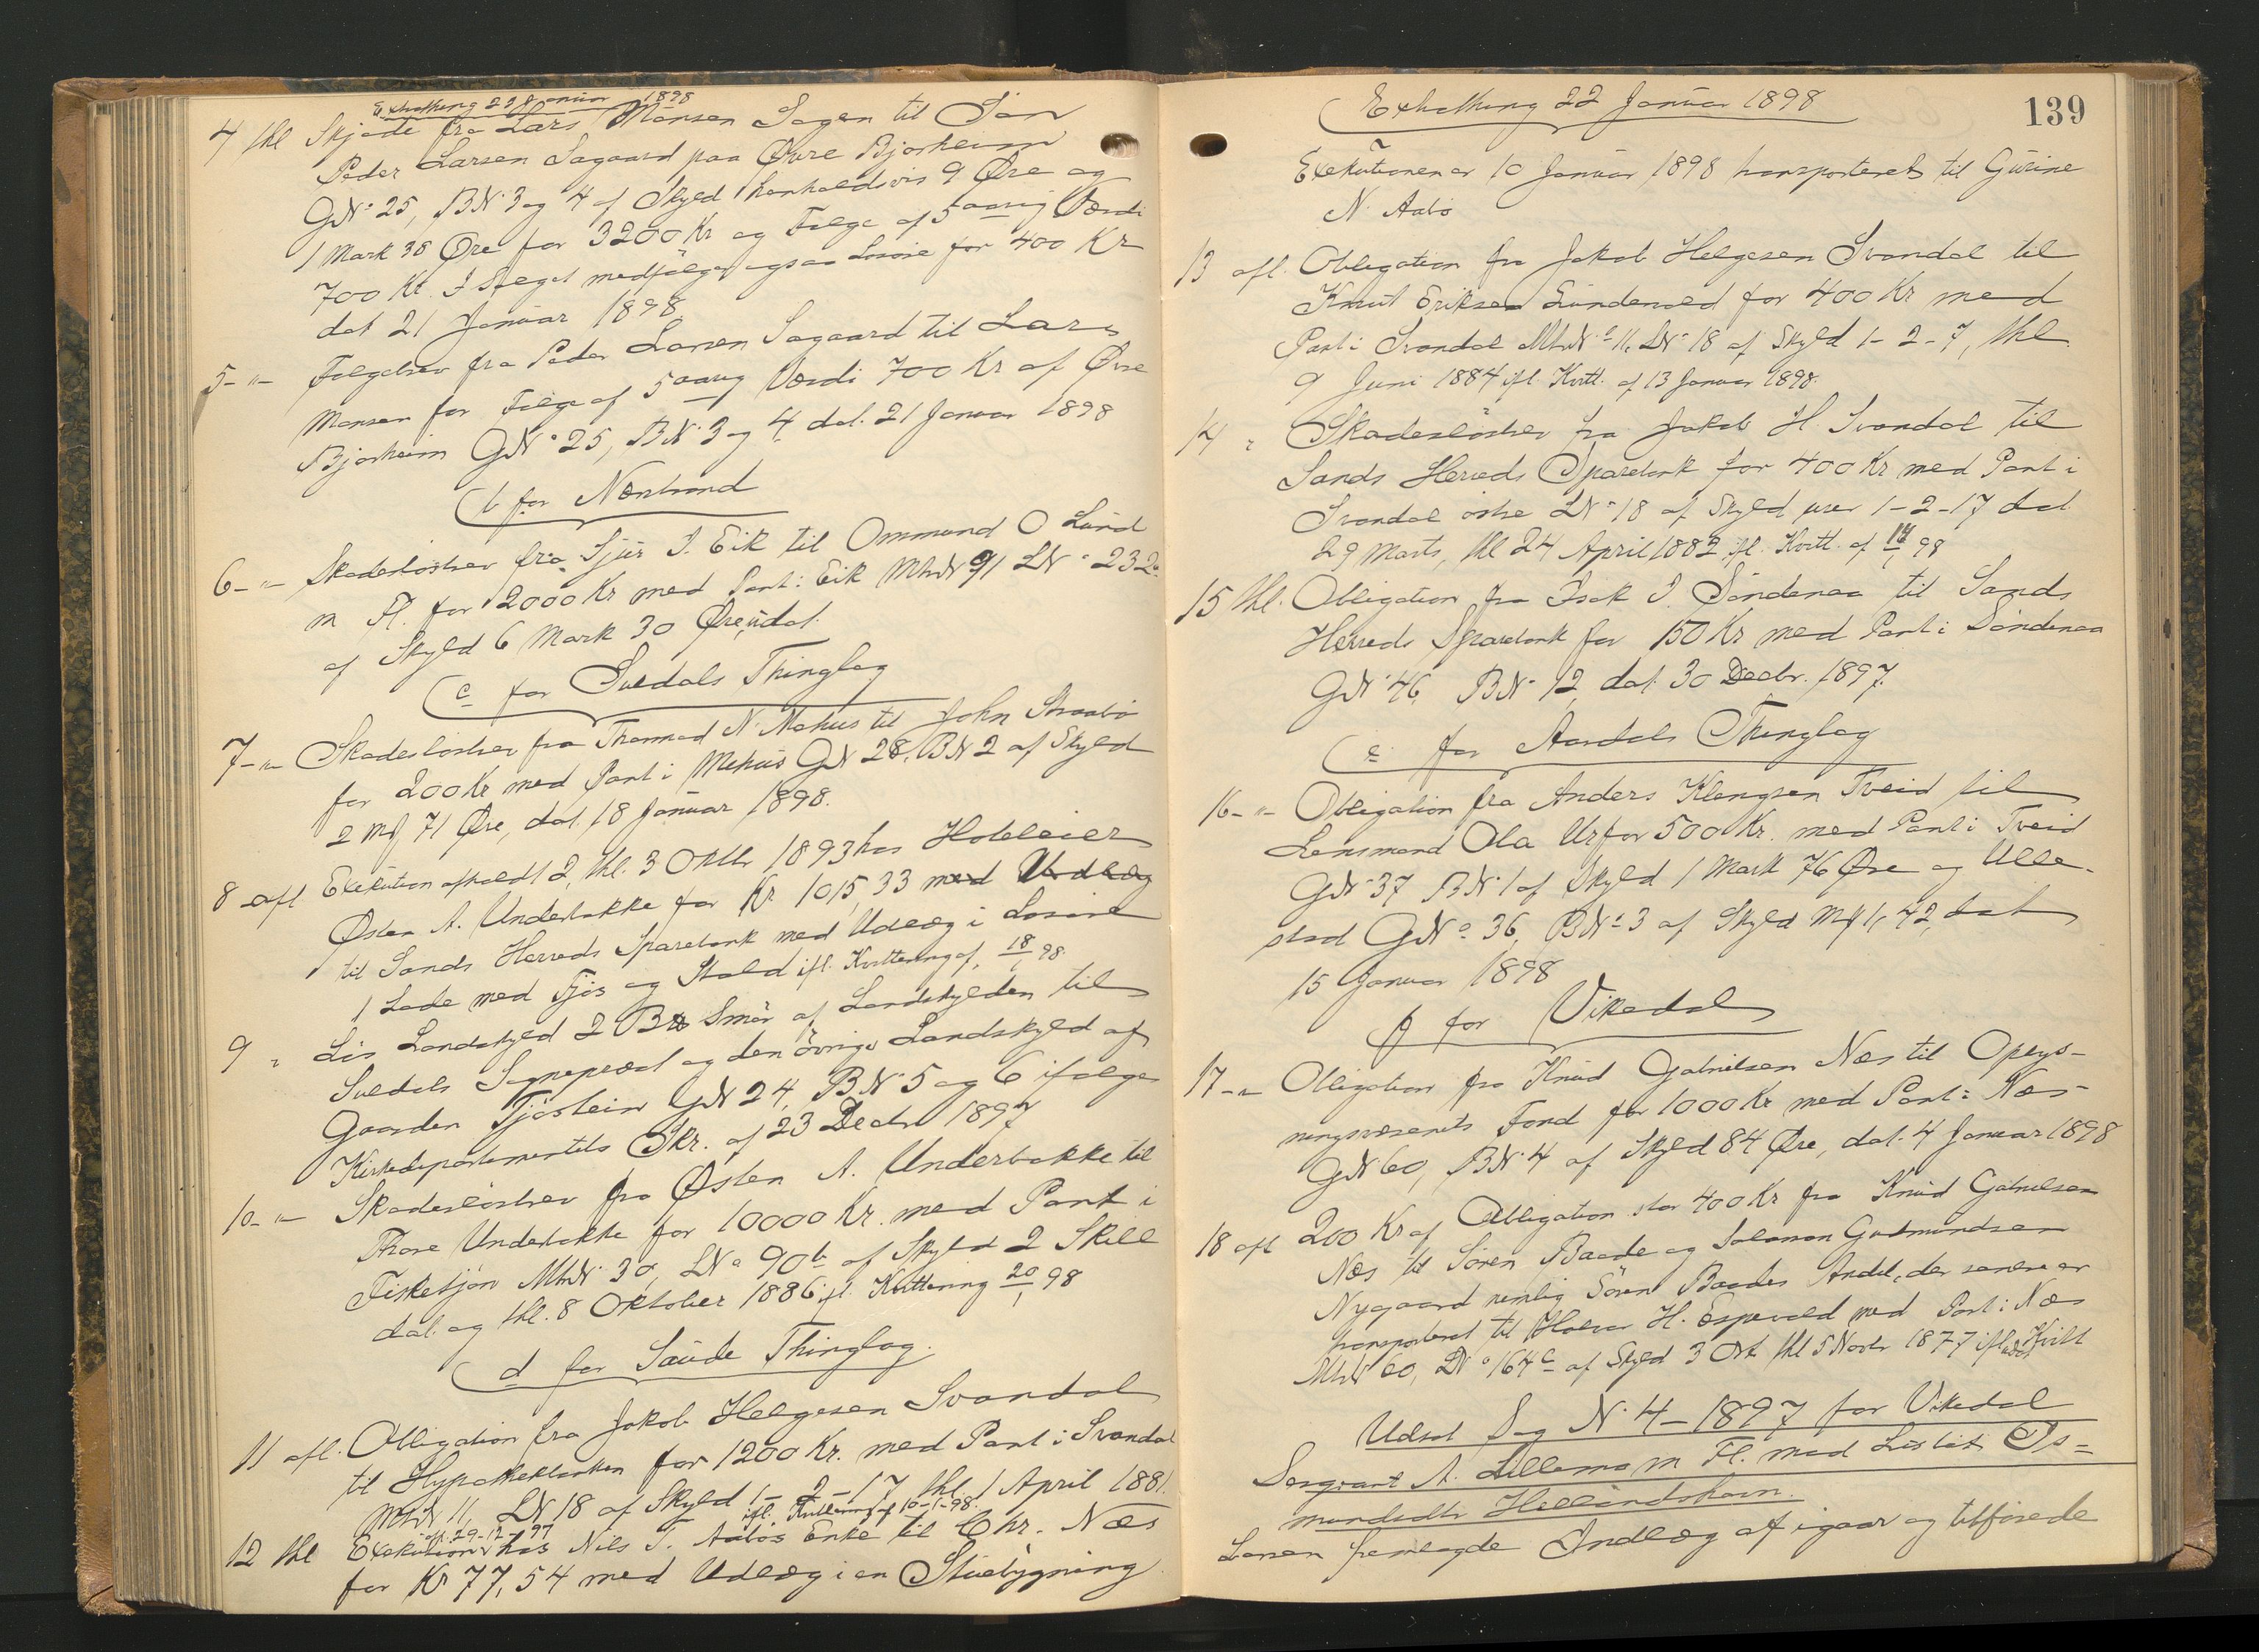 Extrathing 22 Januar 1898
4 thl Skjøde fra Lars Monsen Sagen til Søn
Peder Larsen Sagaard paa Øvre Bjorheim
GN° 25, BN° 3 og 4 af Skyld henholdsvis 9 Øre og
1 Mark 38 Øre for 3200 Kr og Følge af 5 aarig Værdi
700 Kr. I Salget medfølger ogsaa Løsøre for 400 Kr
dat 21 Januar 1898
5 - " - Følgebrev fra Peder Larsen Sagaard til Lars
Monsen for Følge af 5 aarig Værdi 700 Kr af Øvre
Bjorheim GN° 25, BN° 3 og 4, dat. 21 Januar 1898
b for Nerstrand
6 - " - Skadesløsbrev fra Sjur I. Eik til Ommund O Lund
m Fl. for 2000 Kr med Pant i Eik MtrN 91 LN° 232a
af Skyld 6 Mark 30 Øre, udat.
c for Suldals Thinglag
7 - " - Skadesløsbrev fra Thormod N. Mehus til John Straabø
for 200 Kr med Pant i Mehus GN 28, BN 2 af Skyld
2 Mk 71 Øre, dat. 18 Januar 1898.
8 afl Exekution afholdt 2, thl. 3 Oktbr 1893 hos Hoteleier
Østen A. Underbakke for Kr 1015,33 med Udlæg
til Sands Herreds Sparebank med Udlæg i Løsøre
1 Lade med Fjøs og Stald ifl. Kvittering af 18/1 98.
9 " Løs Landskyld 2 B℔ Smør af Landskylden til
Suldals Sognepræst og den øvrige Landskyld af
Gaarden Tjøstein GN 24, BN° 5 og 6 ifølge
Kirkedepartementets Skr. af 23 Decbr 1897
10 - " - Skadesløsbrev fra Østen A. Underbakke til
Thore Underbakke for 10000 Kr. med Pant i
Fisketjøn MtrN° 30, LN° 90b af Skyld 2 Skill
dat. og thl. 8 Oktober 1886 ifl. Kvittering 20/1 98
d for Saude Thinglag.
11 afl. Obligation fra Jakob Helgesen Svandal
til Hypothekbanken for 1200 Kr. med Pant i Svandal
MtrN 11, LN 18 af Skyld 1-2-17 thl. 1 April 1881.
ifl. Kvittering af 10-1-98.
af. 29-12-97
12 thl Exekution hos Nils T. Aabøs Enke til Chr. Næs
for Kr 77,54 med Udlæg i en Stuebygning
139
Extrathing 22 Januar 1898
Exekutionen er 10 Januar 1898 transporteret til Gurine
N. Aabø
13 afl. Obligation fra Jakob Helgesen Svandal til
Knut Eriksen Lundevold for 400 Kr med
Pant i Svandal MtrN° 11, LN° 18 af Skyld 1-2-7, thl
9 Juni 1884 ifl. Kvitt. af 13 Januar 1898.
14 " Skadesløsbrev fra Jakob H. Svandal til
Sands Herreds Sparebank for 400 Kr med Pant i
Svandal østre LN° 18 af Skyld urev 1-2-17 dat
29 Marts, thl 24 April 1882 ifl. Kvitt. af 14/1 98
15 thl. Obligation fra Isak I. Søndenaa til Sands
Herreds Sparebank for 150 Kr med Pant i Søndenaa
GN° 46, BN° 12, dat. 30 Decbr. 1897.
e. for Aardals Thinglag
16 - " - Obligation fra Anders Klengsen Tveid til
Lensmand Ola Ur for 500 Kr. med Pant i Tveid
GN° 37 BN° 1 af Skyld 1 Mark 76 Øre og Ulle-
stad GN° 36, BN° 3 af Skyld Mk 1,42, dat
15 Januar 1898
f for Vikedal
17 - " - Obligation fra Knud Gabrielsen Næs til Oplys-
ningsvæsenets Fond for 1000 Kr med Pant i Næs
GN 60, BN° 4 af Skyld 84 Øre, dat. 4 Januar 1898
18 afl 200 Kr af Obligation stor 400 Kr fra Knud Gabrielsen
Næs til Søren Baade og Salamon Gudmundsen
Nygaard nemlig Søren Baades Andel, der senere er
transporteret til Halvor H. Espevold med Pant i Næs
MtrN 60, LN° 164c af Skyld 3 Ort thl 5 Novbr 1877 ifl. udat Kvitt
Udsat Sag N° 4 - 1897 for Vikedal
Sergeant A. Lillemo m Fl. mod Lisbet Os-
mundsdtr Hellandshavn.
Larsen fremlagde Indlæg af igaar og tilførede